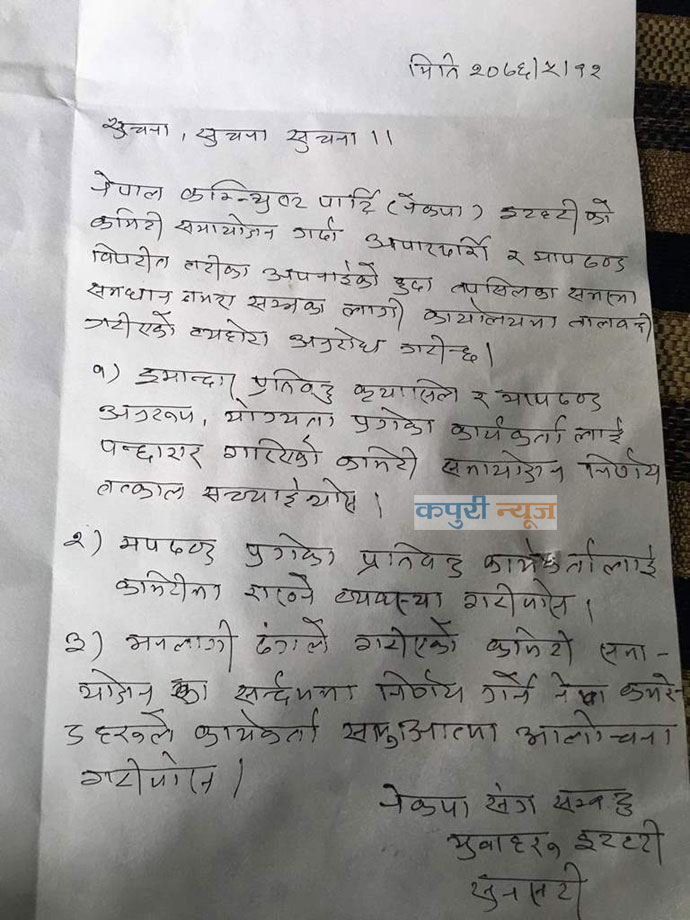 मिति २०७६/५/१२
सुचना, सुचना सुचना ।।
नेपाल कम्न्युिष्ट पार्टि (नेकपा) इटहरीको
कमिटी समायोजन गर्दा अपारदर्शी र मापदण्ड
विपरीत तरीका अपनाईको हुदा तपसिलका समस्या
समधान नभए सम्मका लागी कार्यालयमा तालाबन्दी
गरीएको व्यहोरा अनुरोध गरीन्छ।
१) इमान्दार प्रतिवद्द क्रयासिल र मापदण्ड
अनुरूप, योग्यता पुगेका कार्यकर्ता लाई
पन्छाएर गरिएको कमिटी समायोजन निर्णय
तत्काल सच्याईयोस।
कपुरी न्यूज
२) मपदण्ड पुगेका प्रतिवद्द कार्यकर्तालाई
कमिटीमा राख्ने व्यवस्था गरीयोस।
३) मनलागी ढंगले गरीएको कमिटी समा-
योजन का सर्न्दभमा निर्णय गर्ने नेता कमरे-
डहरूले कार्यकर्ता सामु आत्मा आलोचना
गरीयोस।
नेकपा संग सम्वद्द
युवाहरू इटहरी
सुनसरी